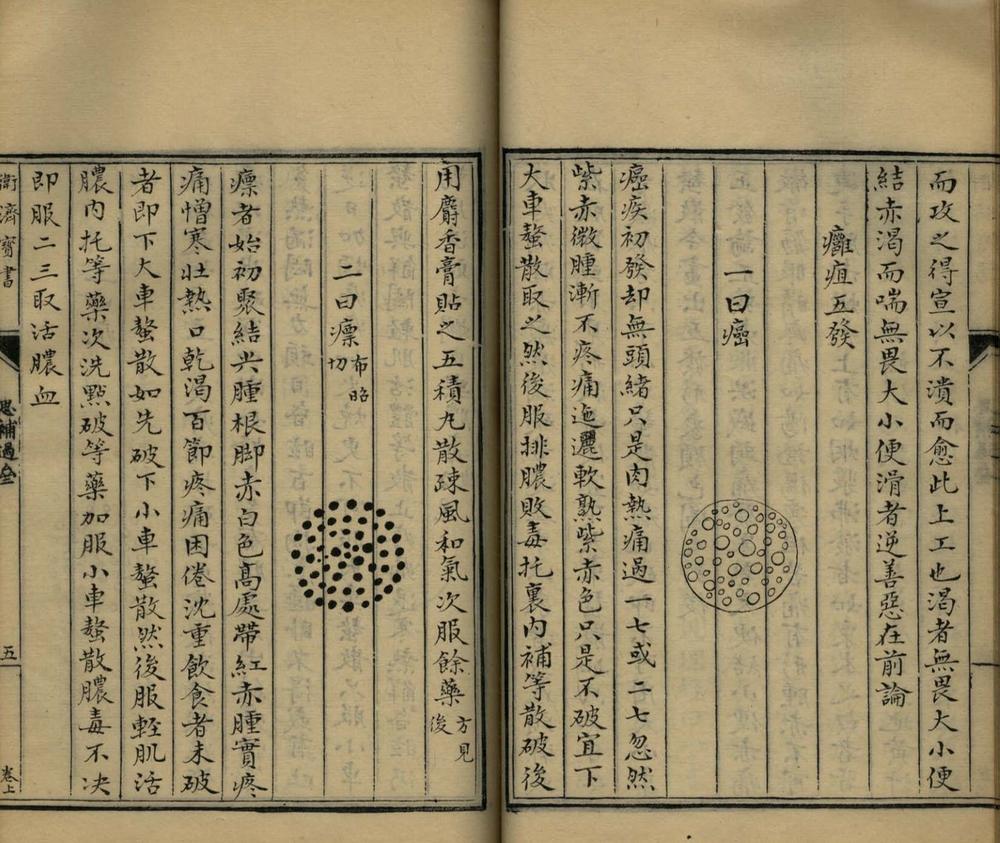 而攻之得宣以不潰而愈此上工也渴者無畏大小便
結赤渴而喘無畏大小便滑者逆善惡在前論
癰疽五發
一曰癌
癌疾初發却無頭緒只是肉熱痛過一七或二七忽然
紫赤微腫漸不疼痛迤邐軟熟紫赤色只是不破宜下
大車螯散取之然後服排膿敗毒托裏內補等散破後
用麝香膏貼之五積丸散疎風和氣次服餘藥方見後
二曰瘭布昭切
瘭者始初聚結尖腫根脚赤白色高處帶紅赤腫實疼
痛憎寒壯熱口乾渴百節疼痛困倦沈重飲食者未破
者即下大車螯散如先破下小車螯散然後服輊肌活
膿內托等藥次洗㸃破等藥加服小車螯散膿毒不决
即服二三取活膿血
衛濟寶書
思補過全
五
卷上